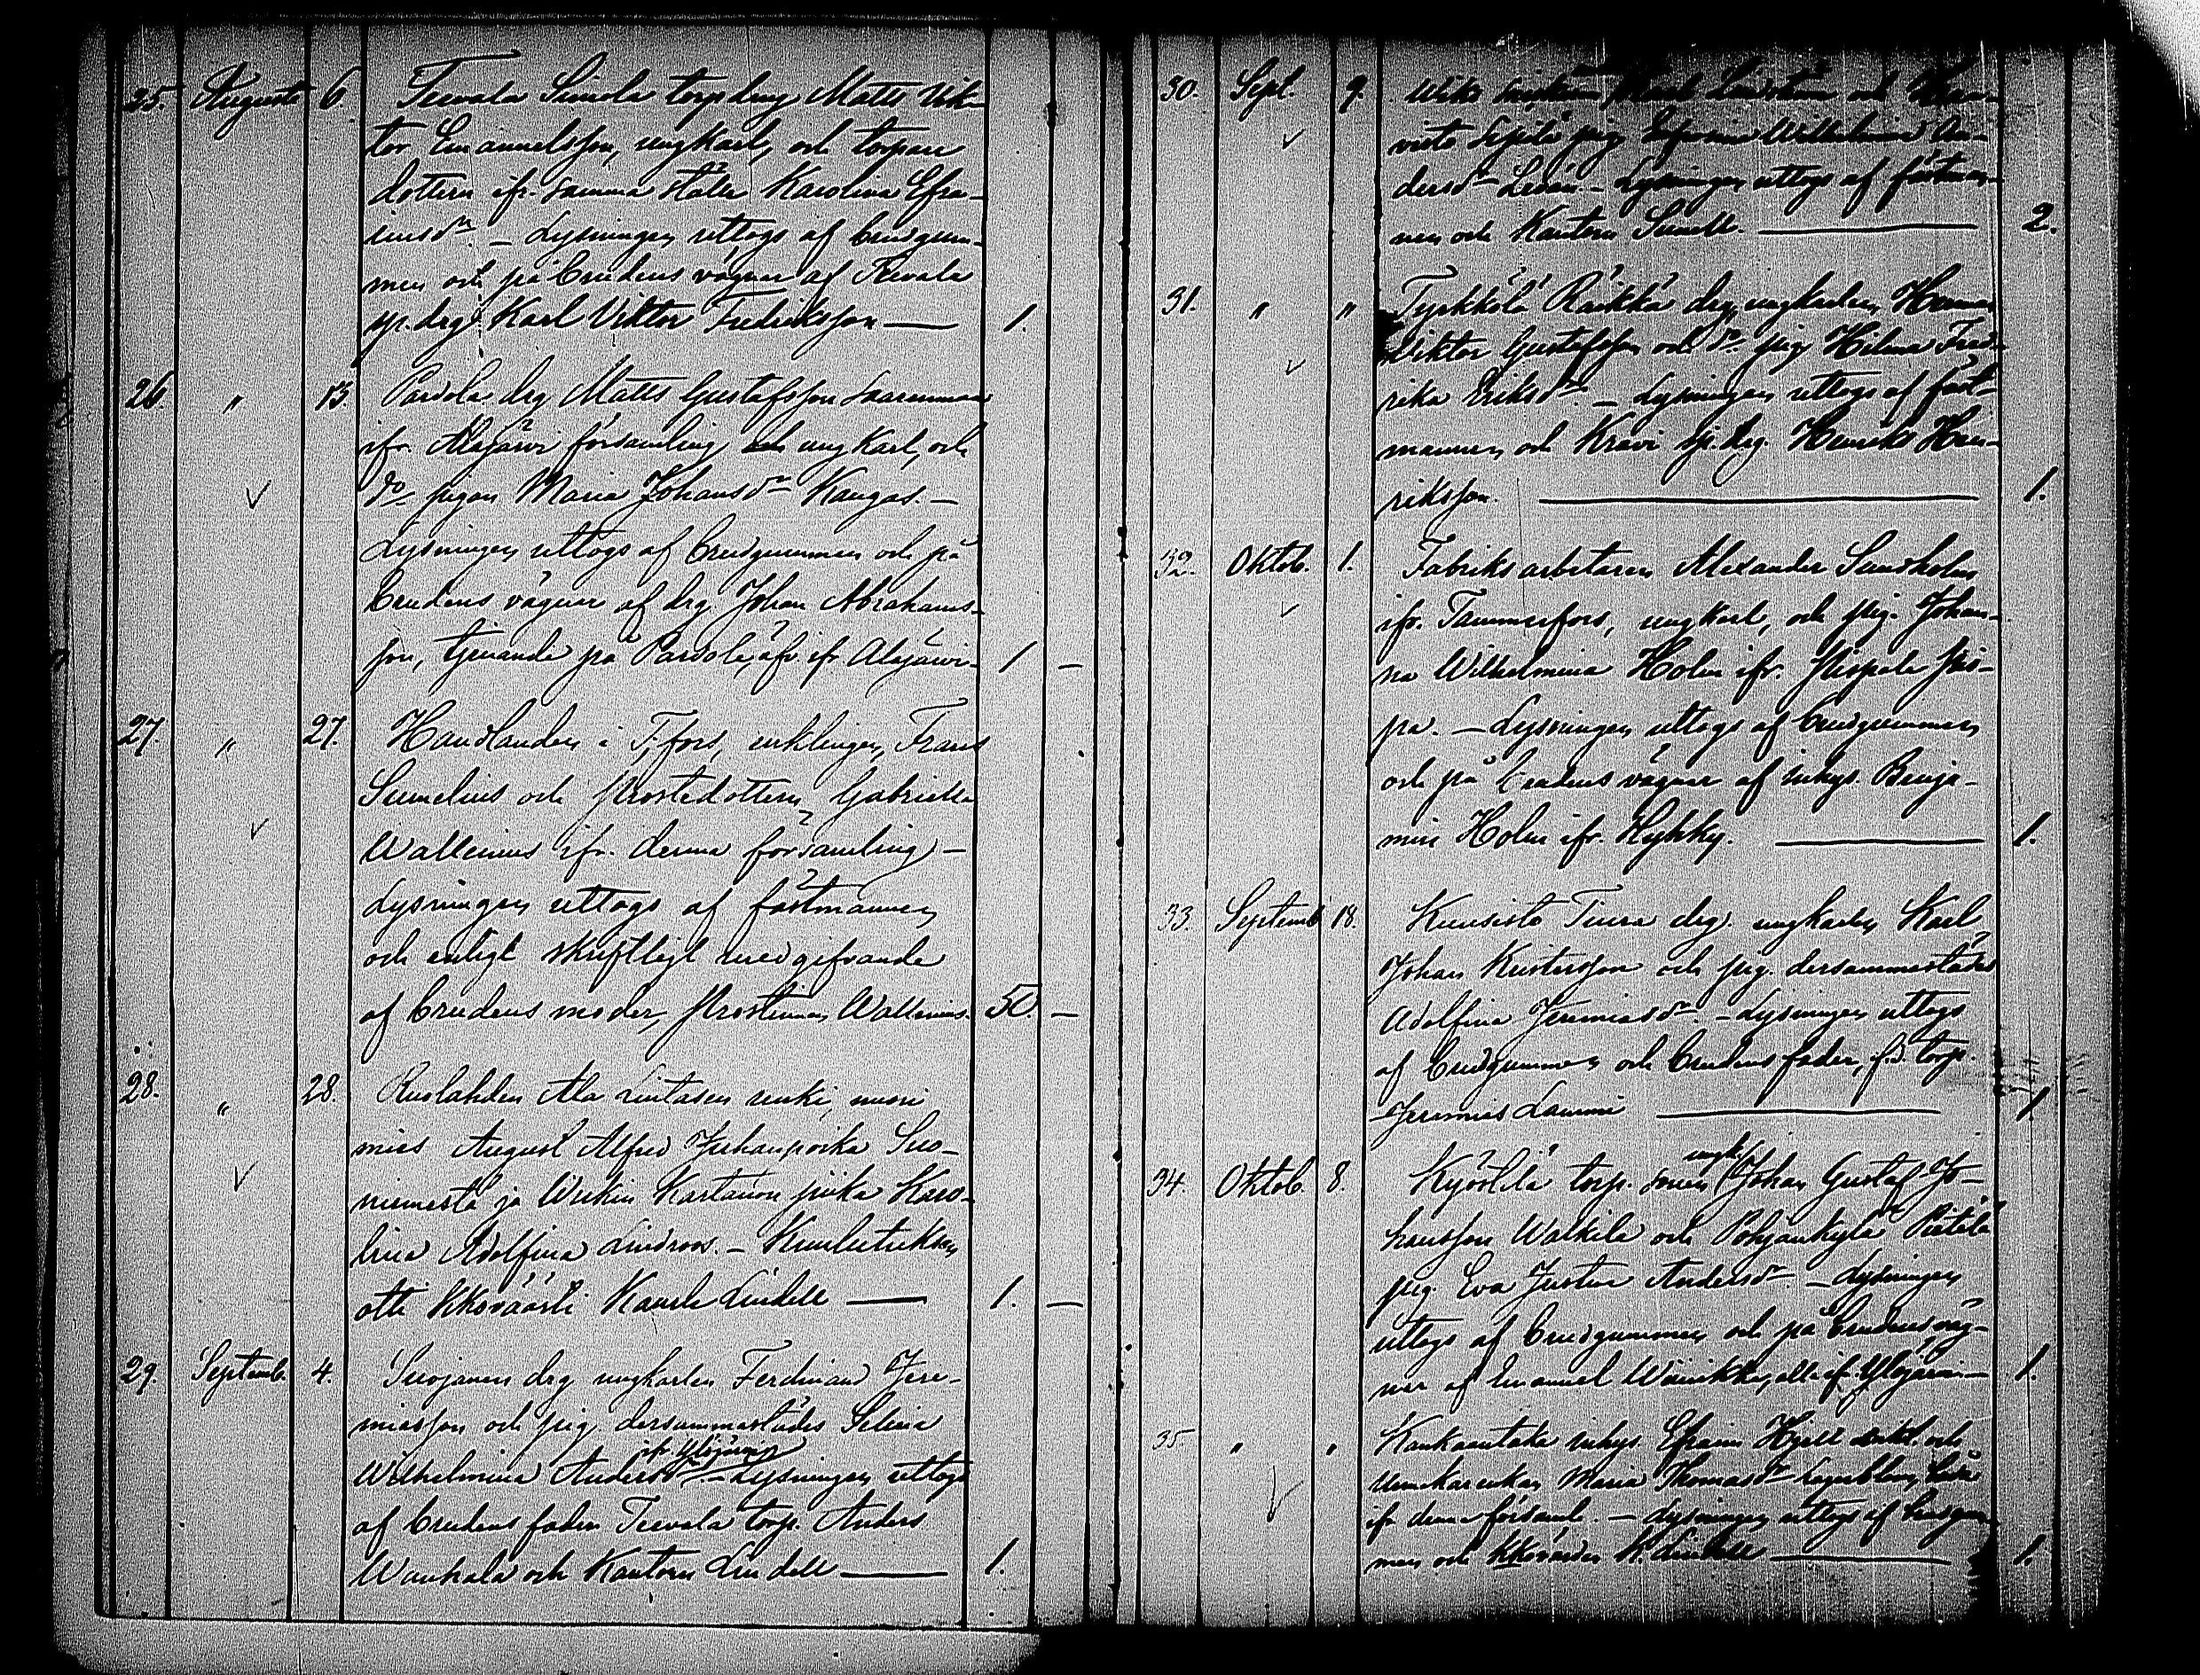 25. Augusti 6. Teevala Simola torp.drng Matts Vik-
tor Emanuelsson, ungkarl, och torpare
dottern ifr. samma ställe Karolina Efra-
imsdr. – Lysningen uttogs af brudgum-
men och på brudens vägnar af Teevala
drg Karl Viktor Fredriksson — 1.
26. " 13. Pardola drg Matts Gustafsson Saarenmaa
ifr. Alajärvi församling ungkarl, och
do pigan Maria Johansdr Kangas. –
Lysningen uttogs af brudgummen och på
brudens vägnar af drg. Johan Abrahams-
son, tjenande på Pardola, äfv. ifr. Alajärvi – 1 –
27. " 27. Handlanden i T.fors, enklingen, Frans
Sumelius och prostedottern Gabriella
Wallenius ifr. denna församling –
Lysningen uttogs af fästmannen
och enligt skriftligt medgifvande
af brudens moder, prostinnan Wallenius. 50 –
28. " 28. Ruolahden Ala renki, nuori
mies August Alfred Juhanpoika Suo-
niemestä ja Kartanon piika Karo-
lina Adolfina Lindroos. – Kuulutuksen
otti Kkoväärti Lindell — 1. –
29. Septemb. 4. drg ungkarlen Ferdinand Jere-
miasson och pig. dersammastädes Selina
ifr. Ylöjärvi
Wilhelmina Andersdr. – Lysningen uttogs
af brudens fader Teevala torp. Anders
Wankala och Kantorn Lindell — 1.
30. Sept. 9. och
pig Wilhelmina An-
dersdr – Lysningen uttogs af fästman-
nen och Kantorn — 2.
31. " " Tyrkkölä Räikkä drg, ungkarlen,
Viktor Gustafsson och do pig Helena Fred-
rika Eriksdr. – Lysningen uttogs af fäst-
mannen och Kravi drg. Henrik Hen-
riksson. — 1.
32. Oktob. 1. Fabriksarbetaren Alexander
ifr. Tammerfors, ungkarl, och pig. Johan-
na Wilhelmina Holm ifr. Pispala Pis-
pa. – Lysningen uttogs af brudgummen
och på brudens vägnar af inhys. Benja-
min Holm ifr. Hyhky. — 1.
33. Septemb. 18. Kuusisto Tiura drg. ungkarlen Karl
Johan Kustersson och pig. dersammastädes
Adolfina Jeremiasdr – Lysningen uttogs
af brudgummen och brudens fader, f.d. torp.
Jeremias Lammi — 1
ungk.
34. Oktob. 8. torp. sonen Johan Gustaf Jo-
hansson Walkila och Pohjankylä Pietilä
pig. Eva Justina Andersdr – Lysningen
uttogs af brudgummen och på brudens väg-
nar af Emanuel alla ifr Ylöjärvi – 1.
35 " " Kankaantaka inhys. Efraim enkl. och
Maria Thomasdr
ifr denna församl. – Lysningen uttogs af brudgum-
men och Kkovärden K. Lindell — 1.